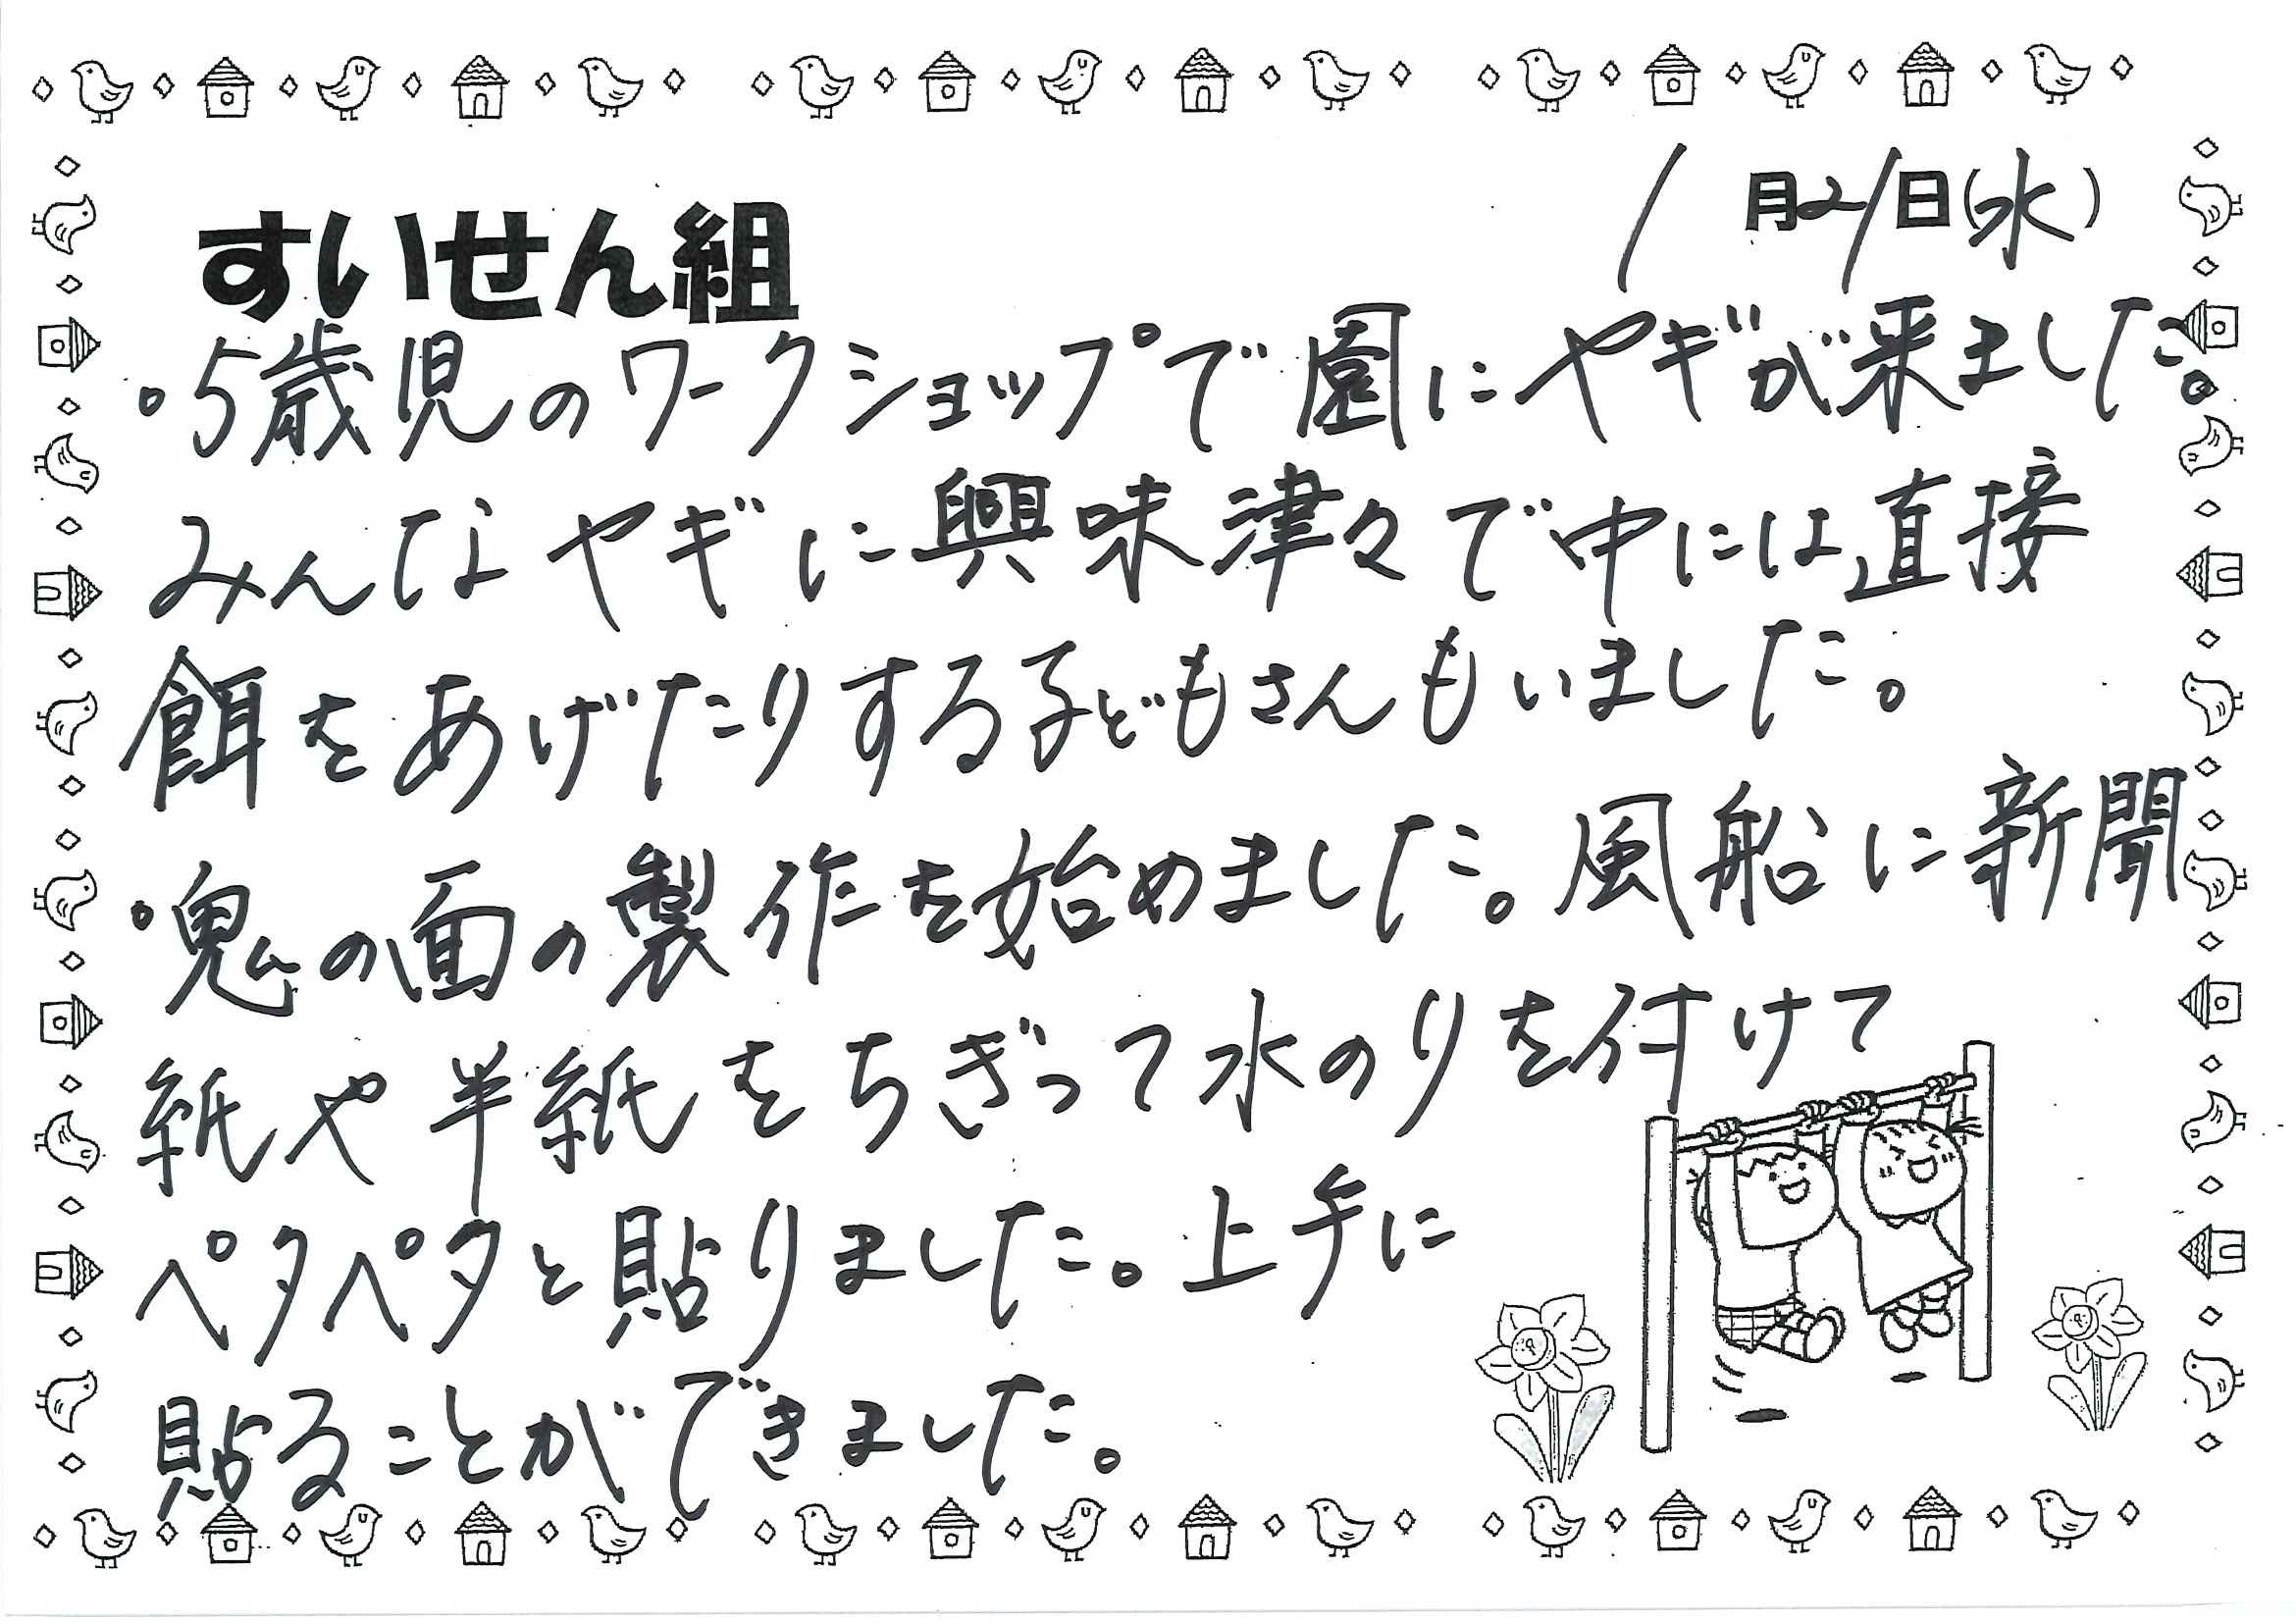 1月21日(水)
すいせん組
。5歳児のワークショップで園にヤギが来ました。
みんなヤギに興味津々で中には直接
餌をあげたりする子どもさんもいました。
。鬼の面の製作を始めました。風船に新聞
紙や半紙をちぎって水のりを付けて
ペタペタと貼りました。上手に
貼ることができました。